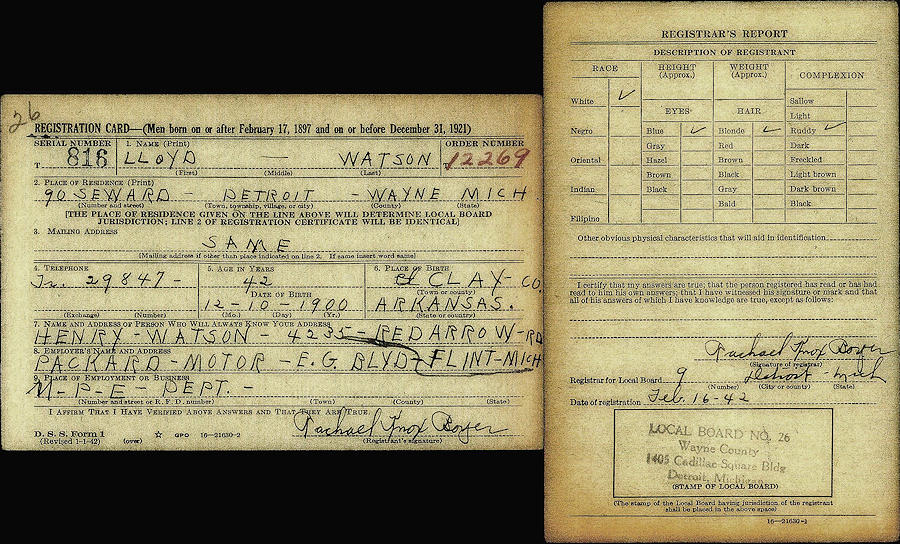 26
REGISTRATION CARD—(Men born on or after February 17, 1897 and on or before December 31, 1921)
SERIAL NUMBER 1. NAME (Print) ORDER NUMBER
T 816 LLOYD — WATSON T 12269
(First) (Middle) (Last)
2. PLACE OF RESIDENCE (Print)
90 SEWARD - DETROIT - WAYNE MICH
(Number and street) (Town, township, village, or city) (County) (State)
[THE PLACE OF RESIDENCE GIVEN ON THE LINE ABOVE WILL DETERMINE LOCAL BOARD
JURISDICTION; LINE 2 OF REGISTRATION CERTIFICATE WILL BE IDENTICAL]
3. MAILING ADDRESS
SAME
(Mailing address if other than place indicated on line 2. If same insert word same)
4. TELEPHONE 5. AGE IN YEARS 6. PLACE OF BIRTH
29847 - 42 CLAY - CO.
DATE OF BIRTH (Town or county)
12 - 10 - 1900 ARKANSAS.
(Exchange) (Number) (Mo.) (Day) (Yr.) (State or country)
7. NAME AND ADDRESS OF PERSON WHO WILL ALWAYS KNOW YOUR ADDRESS
HENRY - WATSON - 4235 - RED ARROW - RD
8. EMPLOYER'S NAME AND ADDRESS
PACKARD - MOTOR - E.G. BLVD - FLINT - MICH
9. PLACE OF EMPLOYMENT OR BUSINESS
M - P - E - DEPT. -
(Number and street or R. F. D. number) (Town) (County) (State)
I AFFIRM THAT I HAVE VERIFIED ABOVE ANSWERS AND THAT THEY ARE TRUE.
D. S. S. Form 1 Rachael Knox Boyer
(Revised 1-1-42) (over) ☆ GPO 16—21630-2 (Registrant's signature)
REGISTRAR'S REPORT
DESCRIPTION OF REGISTRANT
RACE HEIGHT (Approx.) WEIGHT (Approx.) COMPLEXION
White ✓ Sallow
EYES HAIR Light
Negro Blue ✓ Blonde ✓ Ruddy ✓
Gray Red Dark
Oriental Hazel Brown Freckled
Brown Black Light brown
Indian Black Gray Dark brown
Bald Black
Filipino
Other obvious physical characteristics that will aid in identification
I certify that my answers are true; that the person registered has read or has had
read to him his own answers; that I have witnessed his signature or mark and that
all of his answers of which I have knowledge are true, except as follows:
Rachael Knox Boyer
(Signature of registrar)
Registrar for Local Board 9 Detroit - Mich
(Number) (City or county) (State)
Date of registration Feb. 16-42
LOCAL BOARD NO. 26
Wayne County
1405 Cadillac Square Bldg
Detroit, Michigan
(STAMP OF LOCAL BOARD)
(The stamp of the Local Board having jurisdiction of the registrant
shall be placed in the above space)
16—21630-1